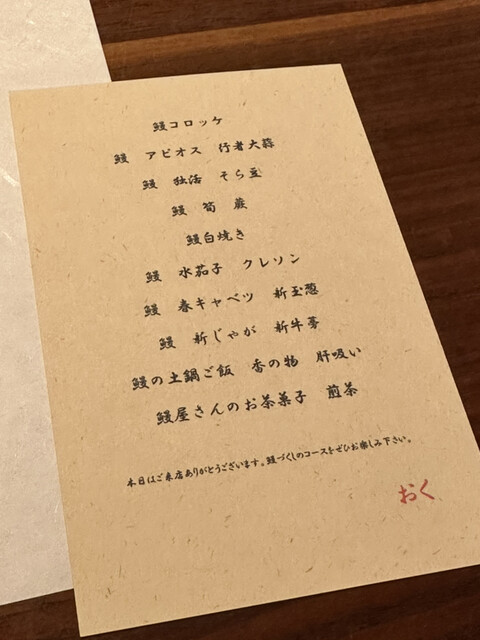 鰻コロッケ
鰻 アピオス 行者大蒜
鰻 独活 そら豆
鰻 筍 蕨
鰻白焼き
鰻 水茄子 クレソン
鰻 春キャベツ 新玉葱
鰻 新じゃが 新牛蒡
鰻の土鍋ご飯 香の物 肝吸い
鰻屋さんのお茶菓子 煎茶
本日はご来店ありがとうございます。鰻づくしのコースをぜひお楽しみ下さい。
おく